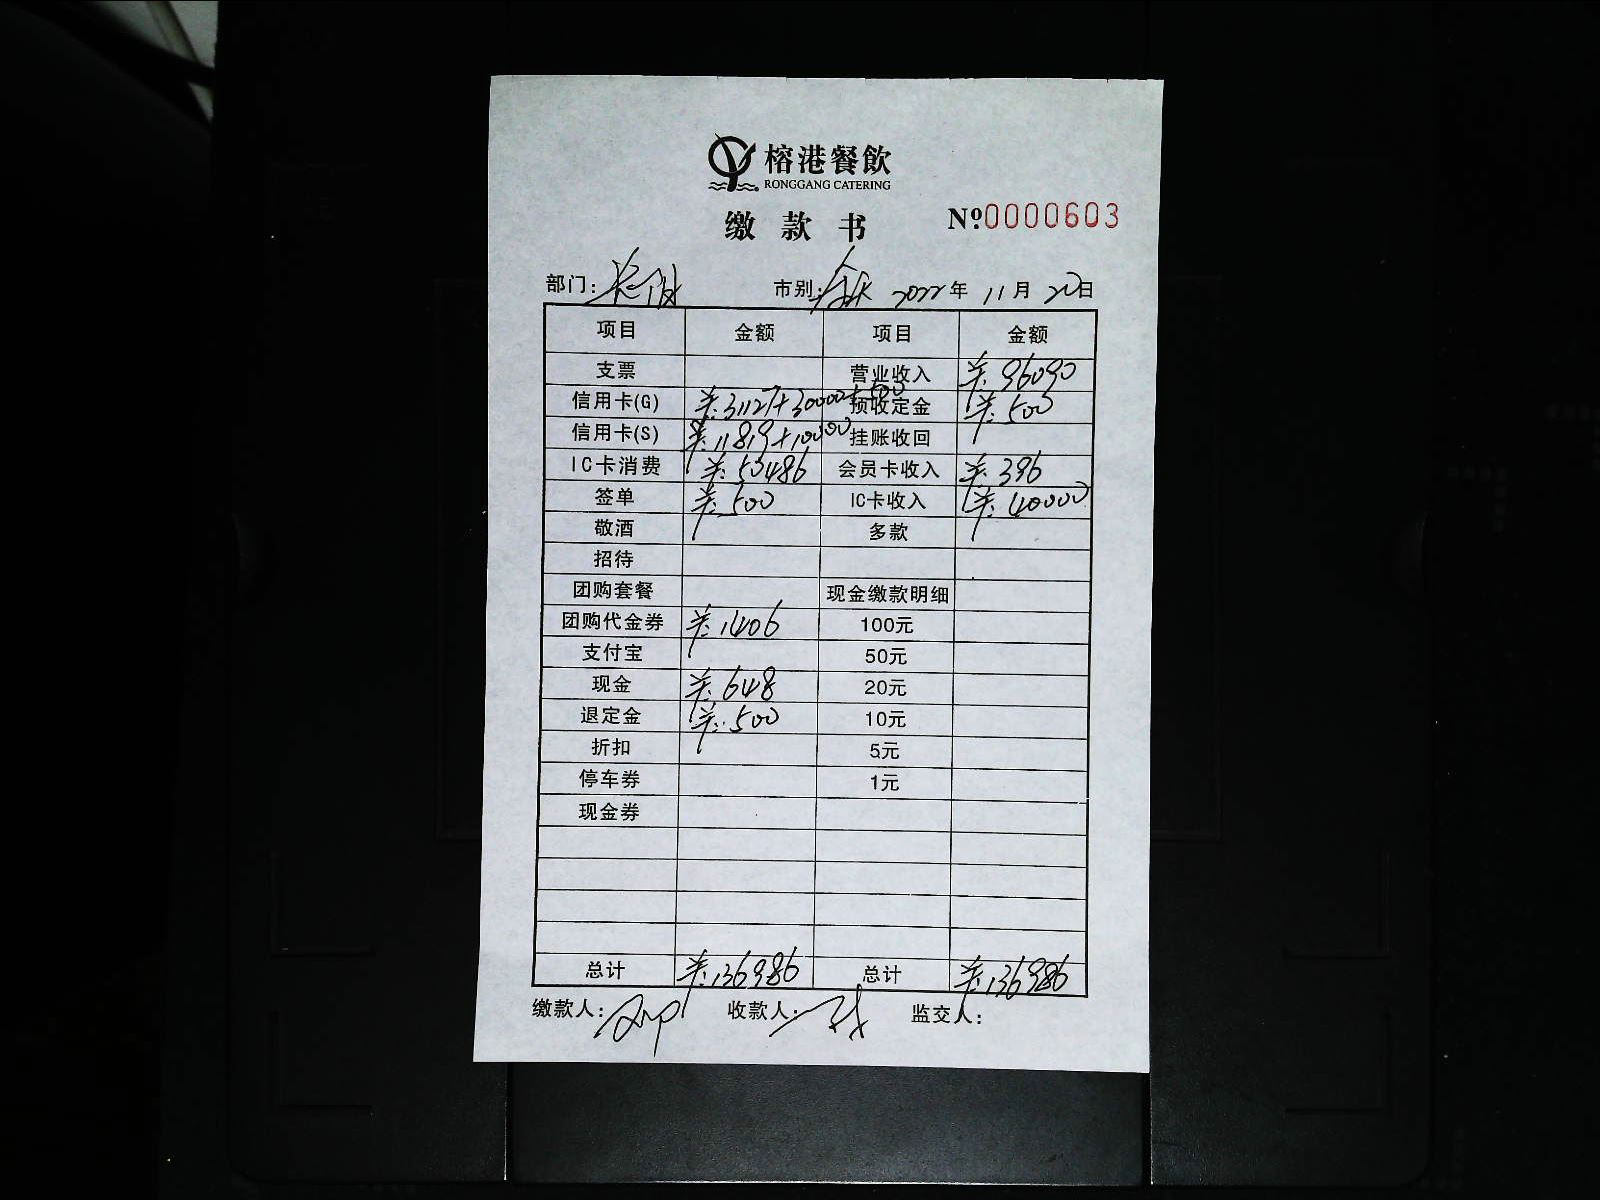 榕港餐飲
RONGGANG CATERING
缴款书 №0000603
部门: 市别: 2022年 11月 20日
项目 金额 项目 金额
支票 营业收入 ¥:96090
信用卡(G) ¥:31127+30000+500 预收定金 ¥:500
信用卡(S) ¥:11819+10000 挂账收回
IC卡消费 ¥:50486 会员卡收入 ¥:396
签单 ¥:500 IC卡收入 ¥:40000
敬酒 多款
招待
团购套餐 现金缴款明细
团购代金券 ¥:1406 100元
支付宝 50元
现金 ¥:648 20元
退定金 ¥:500 10元
折扣 5元
停车券 1元
现金券
总计 ¥:136986 总计 ¥:136986
缴款人: 收款人: 监交人: